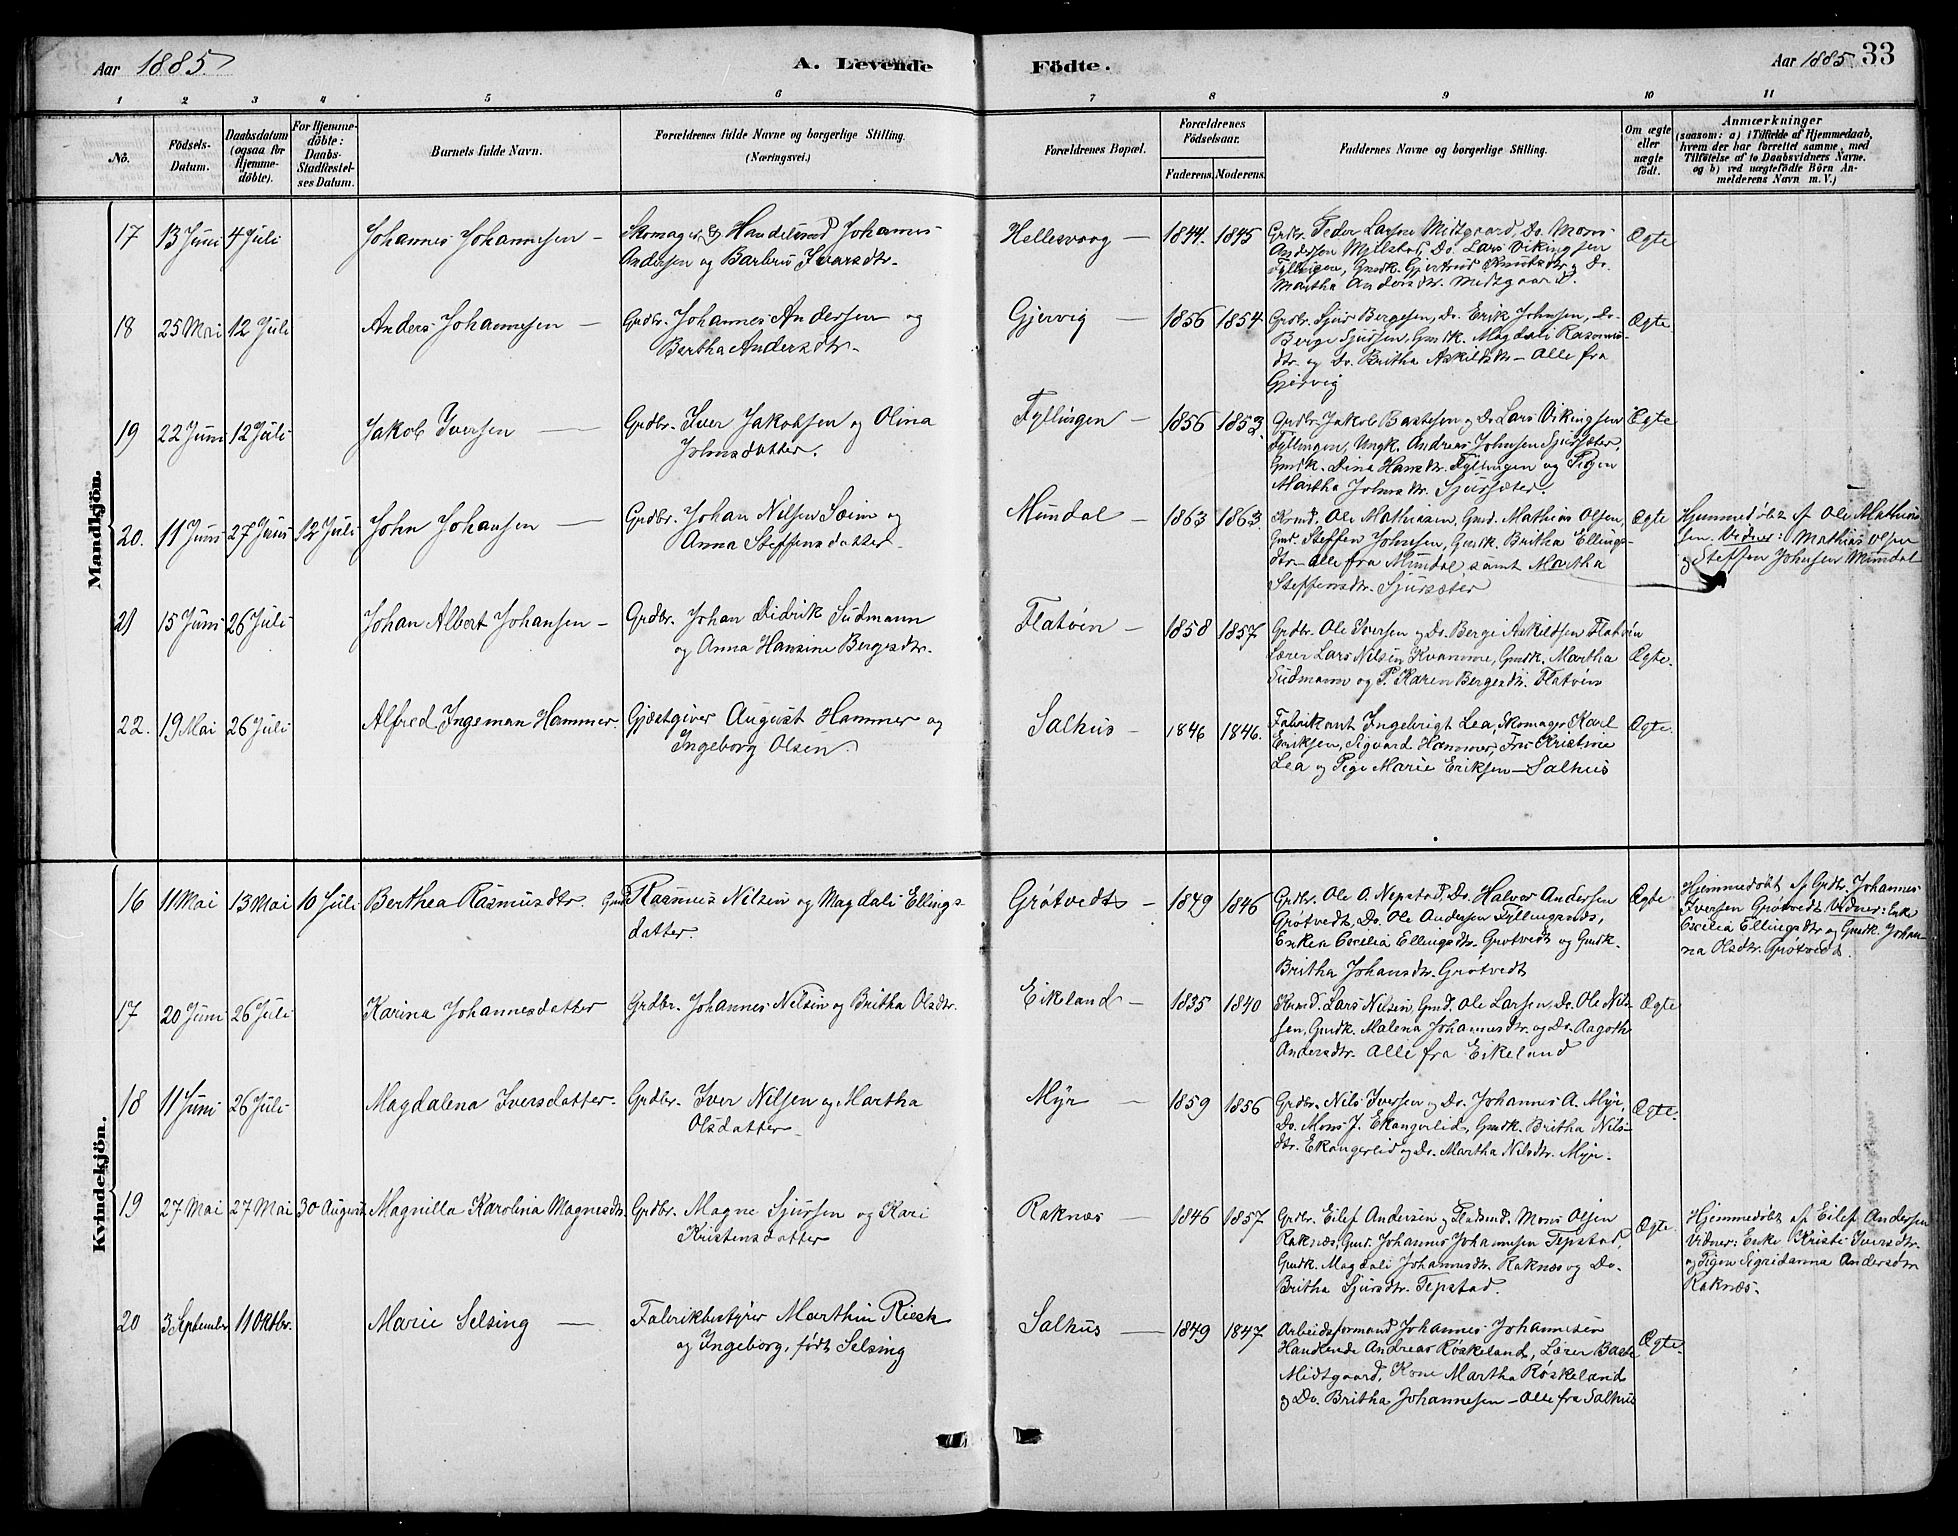 Aar 1885.
A. Levende Födte.
Aar 1885. 33
1 2 3 4 5 6 7 8 9 10 11
No.
Födsels-
Datum.
Daabsdatum
(ogsaa for
Hjemme-
döbte).
For Hjemme-
döbte:
Daabs-
Stadfæstel-
ses Datum.
Barnets fulde Navn.
Forældrenes fulde Navne og borgerlige Stilling.
(Næringsvei.)
Forældrenes Bopæl.
Forældrenes
Födselsaar.
Faderens. Moderens.
Faddernes Navne og borgerlige Stilling.
Om ægte
eller
uægte
födt.
Anmærkninger
(saasom: a) i Tilfælde af Hjemmedaab,
hvem der har forrettet samme, med
Tilföielse af to Daabsvidners Navne.
og b) ved uægtefödte Börn An-
melderens Navn m. V.)
Mandkjön.
17 13 Juni 4 Juli Johannes Johannesen — Skomager & Handelsmd Johannes
Andersen og Barbru Ivarsdtr.
Hellesvaag — 1844. 1845 Grdbr. Peder Larsen Midtgaard, Do. Mons
Andersen Mjelstad, Do. Lars Vikingsen
Fyllingen, Gmdk. Gjertrud Knutsdtr. og Do.
Martha Andersdtr. Midtgaard.
Ægte
18 25 Mai 12 Juli Anders Johannesen — Grdbr. Johannes Andersen og
Bertha Andersdtr.
Gjervig — 1856 1854 Grdbr. Sjur Bergesen, Do. Erik Johnsen, Do.
Berge Sjursen, Gmdk. Magdali Rasmus-
dtr. og Do. Britha Askildsdtr. — Alle fra
Gjervig
Ægte
19 22 Juni 12 Juli Jakob Iversen — Grdbr. Iver Jakobsen og Olina
Johnsdatter.
Fyllingen — 1856 1853. Grdbr. Jakob Bastesen og Do Lars Vikingsen
Fyllingen, Ungk. Andreas Johnsen Sjursæter,
Gmdk. Dina Hansdtr. Fyllingen og Pigen
Martha Johnsdtr. Sjursæter.
Ægte
20. 11 Juni 27 Juni 12 Juli John Johansen — Grdbr. Johan Nilsen Sæim og
Anna Steffensdatter.
Mundal — 1863 1863. Kaarmd. Ole Mathiasen, Gmd. Mathias Olsen,
Gmd. Steffen Johnsen, Gmdk. Britha Ellings-
dtr — alle fra Mundal, samt Martha
Steffensdtr. Sjursæter
Ægte
Hjemmedøbt af Ole Mathia-
sen. Vidner: Mathias Olsen
og Steffen Johnsen Mundal
21 15 Juni 26 Juli Johan Albert Johansen — Grdbr. Johan Didrik Sudmann
og Anna Hansine Bergesdtr.
Flatøen — 1858 1857 Grdbr. Ole Iversen og Do. Berge Askildsen Flatøen
Lærer Lars Nilsen Kvamme, Gmdk. Martha
Sudmann og P. Karen Bergesdtr. Flatøen
Ægte.
22. 19 Mai 26 Juli Alfred Ingeman Hammer. Gjæstgiver August Hammer og
Ingeborg Olsen.
Salhus — 1846 1846. Fabrikant Ingebrigt Lea, Skomager Karl
Eriksen, Sigvard Hammer, Fru Kristine
Lea og Pige Marie Eriksen — Salhus
Ægte.
Kvindekjön.
16 11 Mai 13 Mai 10 Juli Berthea Rasmusdtr. Gmd Rasmus Nilsen og Magdali Ellings-
datter.
Grøtvedt — 1849 1846 Grdbr. Ole O. Nepstad, Do. Halvor Andersen
Grøtvedt, Do. Ole Andersen Fyllingsnes,
Enken Cecelia Ellingsdtr. Grøtvedt og Gmdk.
Britha Johansdtr. Grøtvedt
Ægte
Hjemmedøbt af Grdbr. Johannes
Iversen Grøtvedt. Vidner: Enke
Cecelia Ellingsdtr og Gmdk. Johan-
na Olsdtr. Grøtvedt.
17 20 Juni 26 Juli Karina Johannesdatter Grdbr. Johannes Nilsen og Britha Olsdtr.
Eikeland — 1835 1840 Kaarmd. Lars Nilsen, Gmd. Ole Larsen, Do. Ole Nil-
sen, Gmdk. Malena Johannesdtr. og Do. Aagothe
Andersdtr. Alle fra Eikeland
Ægte
18 11 Juni 26 Juli Magdalena Iversdatter. Grdbr. Iver Nilsen og Martha
Olsdatter
Myr — 1859 1856 Grdbr. Nils Iversen og Do. Johannes A. Myr,
Do. Mons J. Ekangerlid, Gmdk. Britha Nils-
dtr. Ekangerlid og Do. Martha Nilsdtr. Myr.
Ægte.
19 27 Mai 27 Mai 30 August Magnilla Karolina Magnesdtr. Grdbr. Magne Sjursen og Kari
Kristensdatter
Raknæs — 1846 1857 Grdbr. Eilef Andersen og Pladsmd. Mons Olsen
Raknæs, Gmd. Johannes Johannesen Tepstad,
Gmdk. Magdali Johannesdtr. Raknæs og Do.
Britha Sjursdtr. Tepstad.
Ægte.
Hjemmedøbt af Eilef Andersen
Vidner: Enke Kristi Iversdtr.
og Pigen Sigridanna Andersdtr
Raknæs.
20 3 September 11 Oktbr. Marie Selsing — Fabrikbestyrer Marthin Rieck
og Ingeborg, født Selsing
Salhus — 1849 1847 Arbeidsformand Johannes Johannesen
Handlende Andreas Røskeland, Lærer Baste
Midtgaard, Kone Martha Røskeland
og Do. Britha Johannesen — Alle fra Salhus
Ægte.